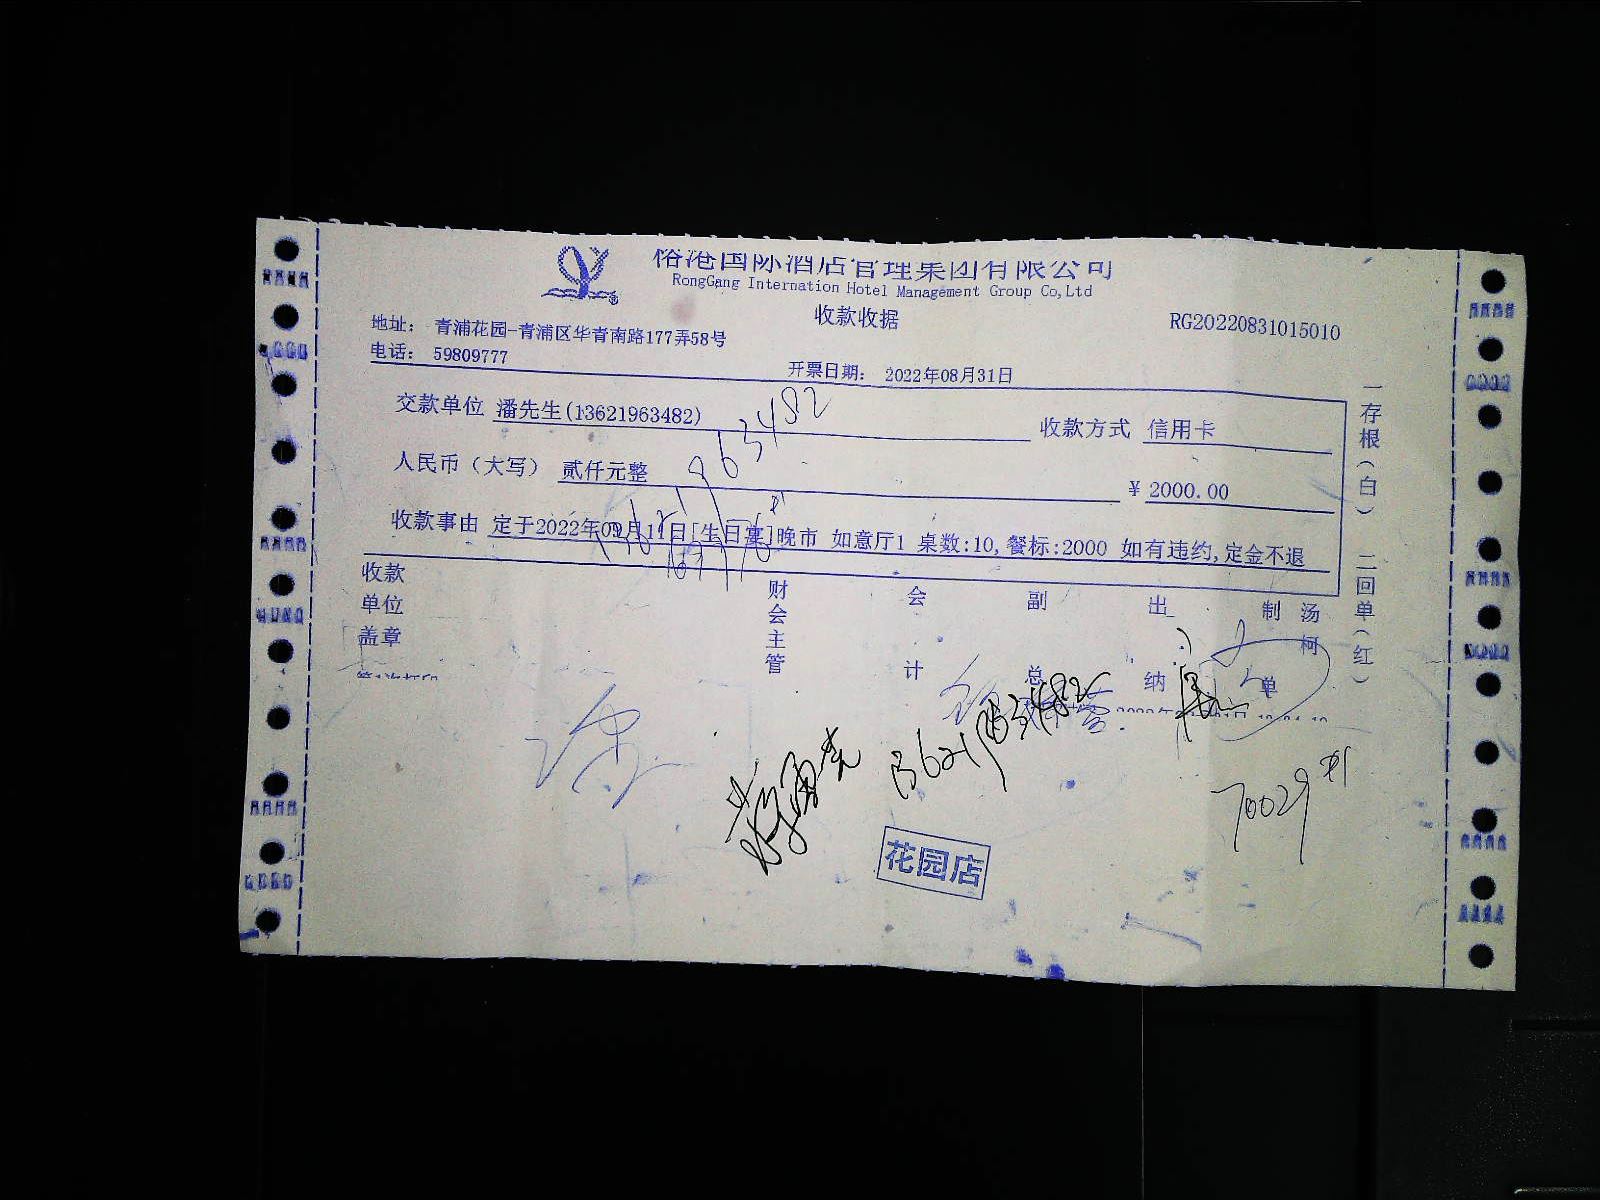 榕港国际酒店管理集团有限公司
RongGang Internation Hotel Management Group Co,Ltd
收款收据
RG20220831015010
地址： 青浦花园-青浦区华青南路177弄58号
电话： 59809777
开票日期： 2022年08月31日
交款单位 潘先生(13621963482) 收款方式 信用卡
人民币（大写） 贰仟元整 ¥ 2000.00
收款事由 定于2022年09月11日[生日宴]晚市 如意厅1 桌数:10,餐标:2000 如有违约,定金不退
一存根（白） 二回单（红）
收款单位盖章
财会主管
会计
副总
出纳
制单
汤柯
963482
13621963482
70029
花园店